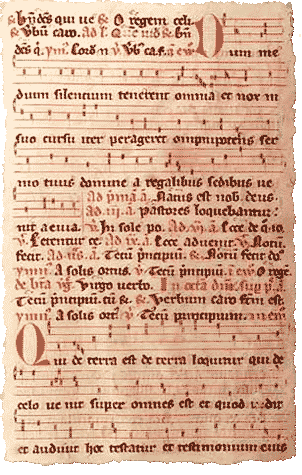 hẏdes qui ue & O regem celi.
& Vbū caro. Ad l. Que uid & hy
des q̇. ymn. Cord n V Vb ca. f. g. ew. Dum me
dium silentium tenerent omnia et nox in
suo cursu iter perageret omnipotens ser
mo tuus domine a regalibus sedibus ue
ad pma. a. Natus est nob deus.
ad .iii. a. pastores loquebantur:
nit aeuia. V. In sole po. Ad .vi. a. Ecce de q̇ io.
V. Letentur ce. Ad .ix. a. Ecce aduenit. V. Notū
fecit. Ad a. Tecū pncipiū. & Notū fecit do
ymn. A solis ortus. V. Tecū pncipiū. ew. O rege.
de bta Virgo verbo. In octa dni. sup ps. a.
Tecū pncipiū. cū & Verbum caro fcm est.
ymn. A solis ort. V. Tecū principium. ew.
Qui de terra est de terra loquitur qui de
celo ue nit super omnes est et quod uidit
et audiuit hoc testatur et testimonium eius